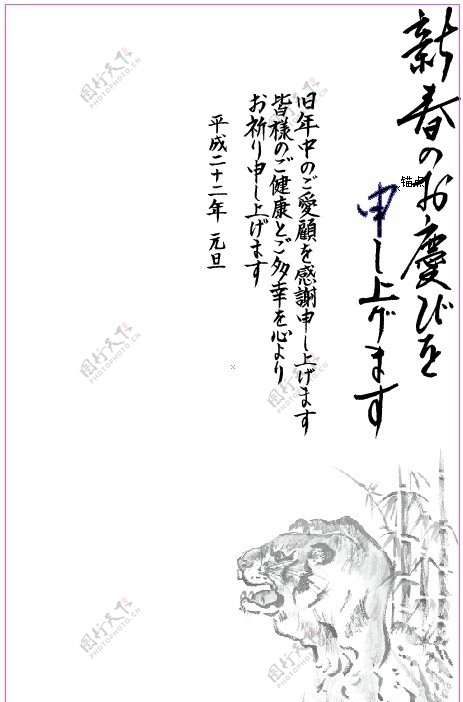 新春のお慶びを
申し上げます
锚点
旧年中のご愛顧を感謝申し上げます
皆様のご健康とご多幸を心より
お祈り申し上げます
平成二十二年 元旦
图行天下
PHOTOPHOTO.CN
图行天下
PHOTOPHOTO.CN
图行天下
PHOTOPHOTO.CN
图行天下
PHOTOPHOTO.CN
图行天下
PHOTOPHOTO.CN
图行天下
PHOTOPHOTO.CN